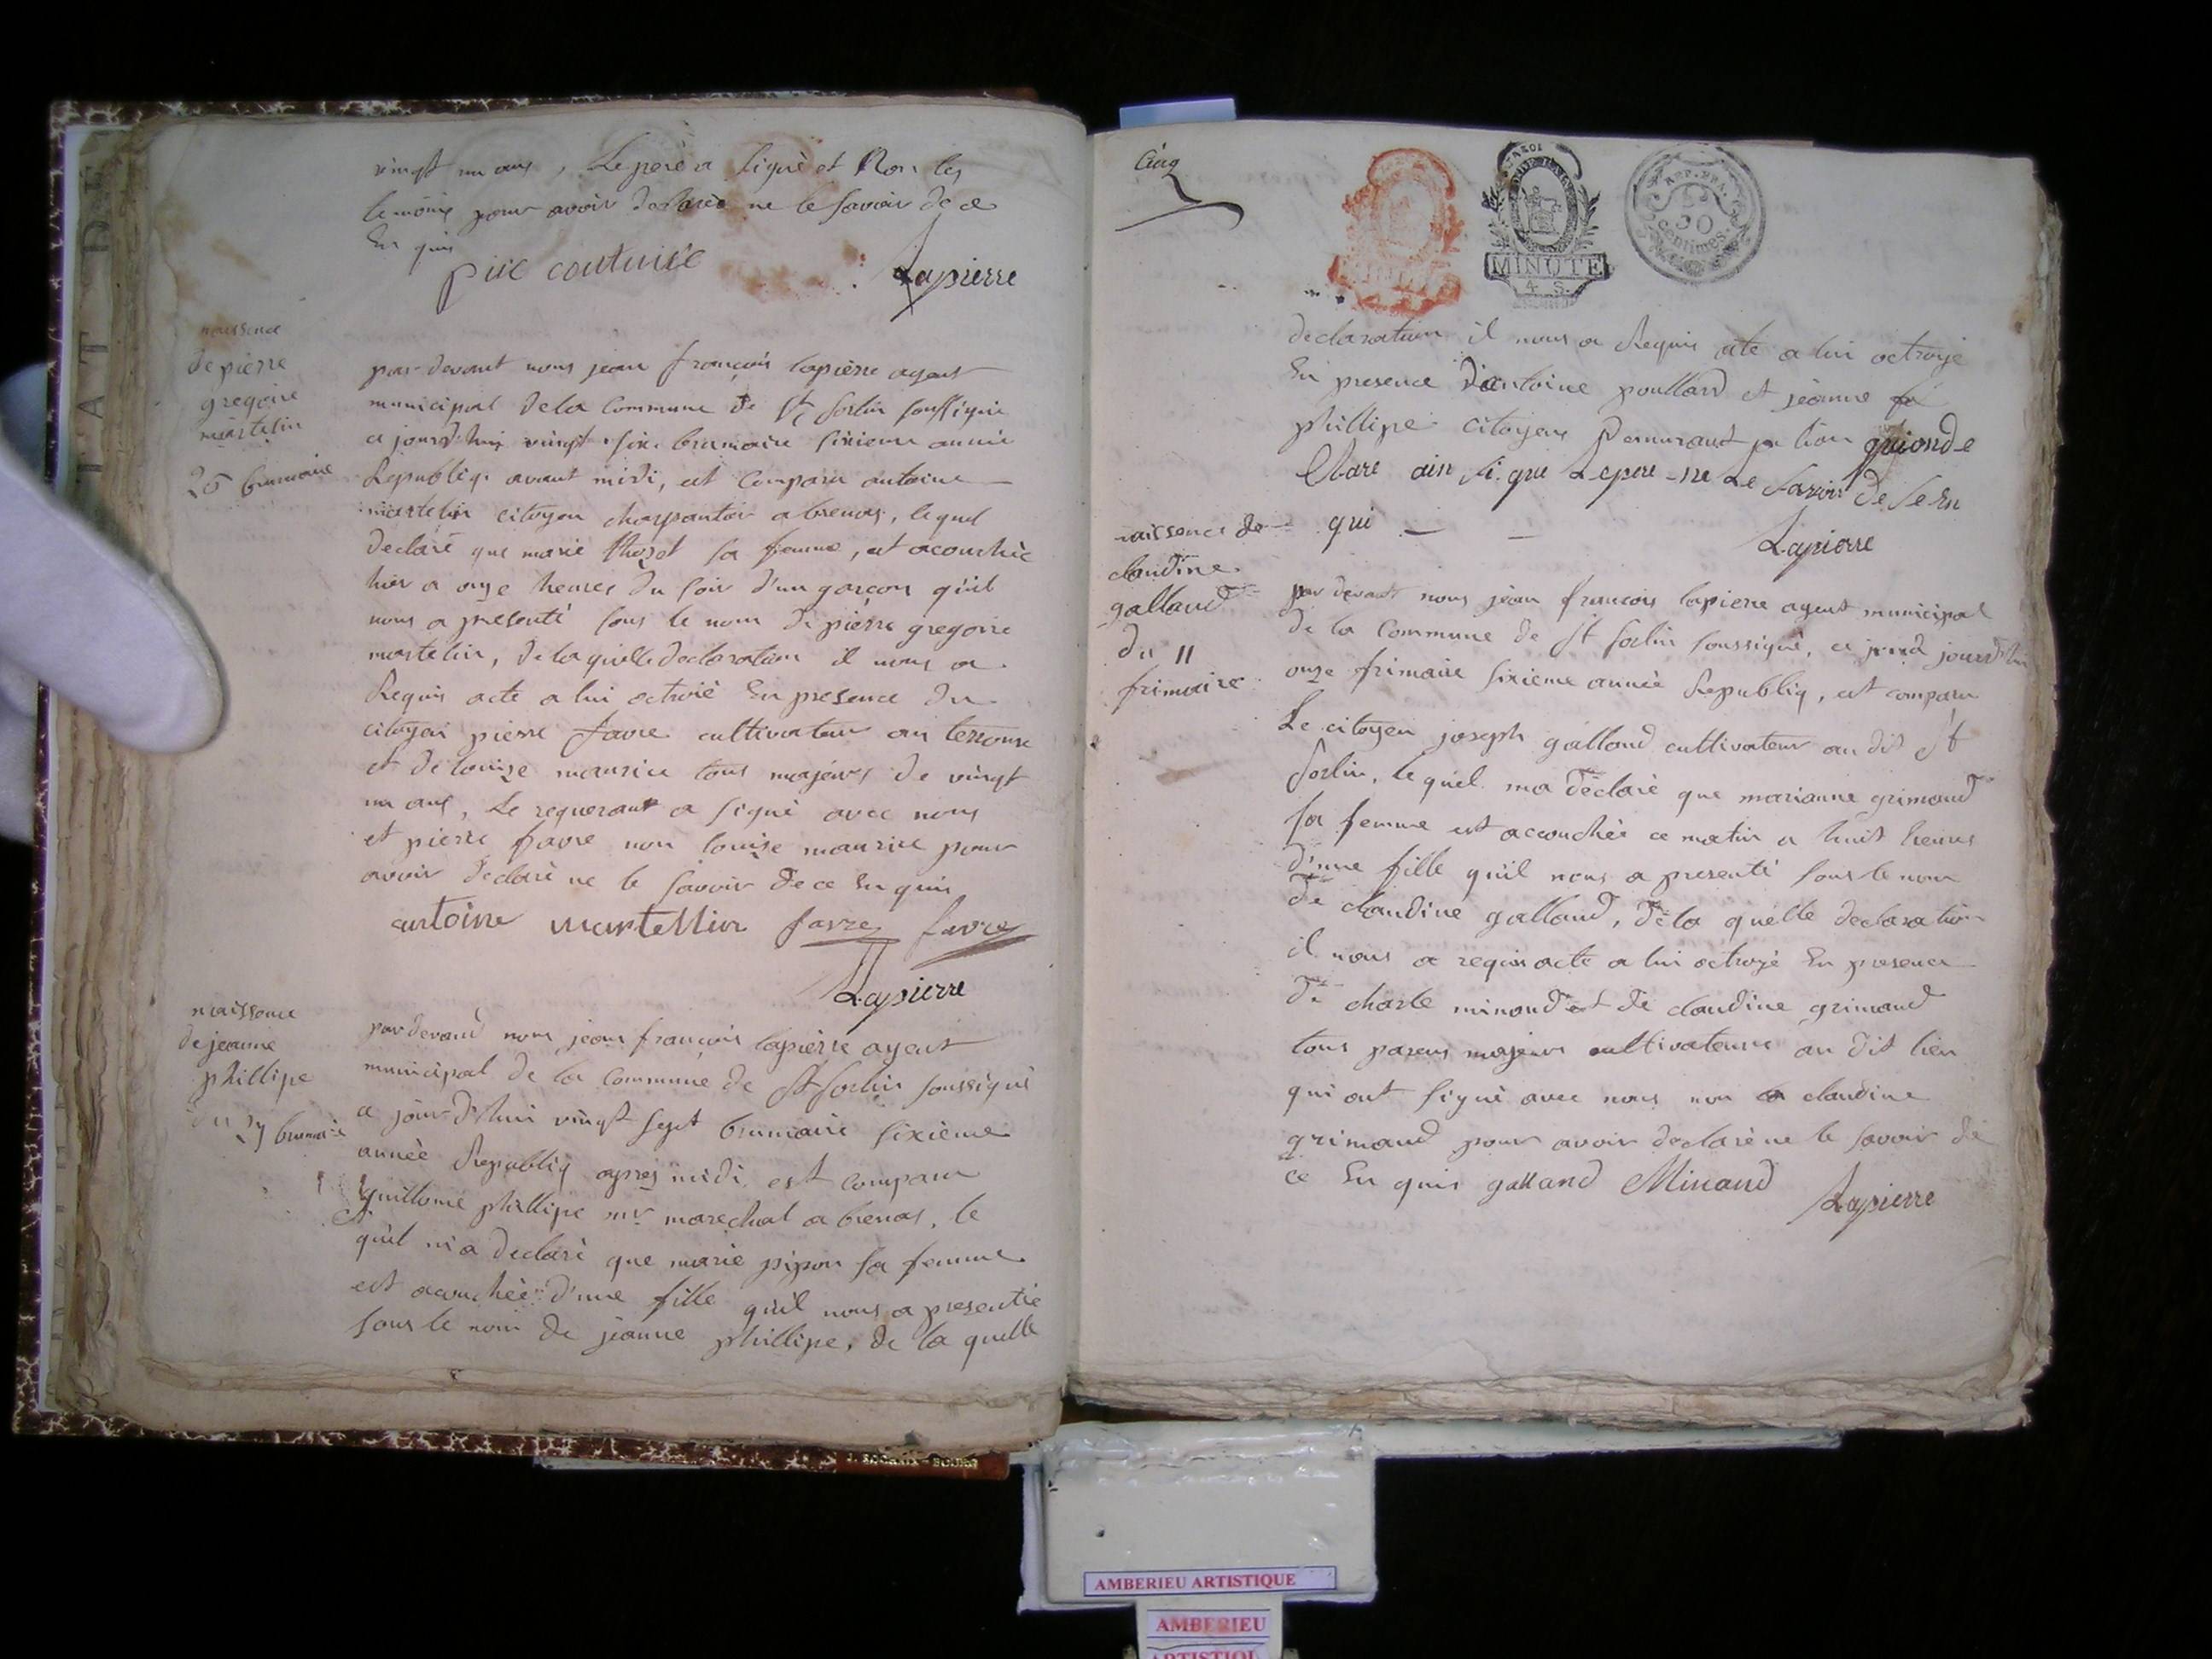 vingt un ans, Le perè a signè et Non les
temoins pour avoir declarè ne le savoir de ce
En quis
Lapierre
naissence
de pierre
gregoire
martelin
26 brumaire
par-devant nous jean françois lapierre agent
municipal de la Commune de St sorlin soussignè
ce jourd'hui vingt six brumaire sixieme année
Republiq. avant midi, est Comparu antoine
martelin citoyen charpantier a brenas, lequel
declaré que marie thozet sa femme, est acouchèe
hier a onze heures du soir d'un garcon qu'il
nous a presenté sous le nom de pierre gregoire
martelin, de laquelle declaration il nous a
Requis acte a lui octroiè En presence du
citoyen pierre favre cultivateur au
et de louise maurice tous majeurs de vingt
un ans, Le requerant a signè avec nous
et pierre favre non louise maurice pour
avoir declarè ne le savoir de ce En quis
antoine martellin favre favre
Lapierre
naissance
de jeanne
phillipe
du 27 brumaire
par devand nous jean françois lapierre agent
municipal de la Commune de St sorlin soussigné
ce jour-d'hui vingt sept brumaire sixième
annèe Republiq apres midi est comparu
guillome phillipe marechal a brenas, le
quel m'a declarè que marie pipon sa femme
est acouchèe d'une fille qu'il nous a presentée
sous le nom de jeanne phillipe, de la quelle
Cinq
MINUTE
4 S.
REP. FRA.
50
centimes.
declaration il nous a Requis acte a lui octroyé
En presence d'antoine poullard et jeanne
phillipe citoyens Demurant qui on de
Clare ain si que Le pere ne Le savoir de se En
qui
Lapierre
naissence de
claudine
galland
du 11
frimaire
par devant nous jean francois lapierre agent municipal
de la Commune de St sorlin soussignè, ce jourd'hui
onze frimaire sixieme année Republiq, est comparu
Le citoyen joseph galland cultivateur au dit St
sorlin, le quel ma dèclarè que marianne grimaud
sa femme est accouchèe ce matin a huit heures
d'une fille qu'il nous a presenté sous le nom
de claudine galland, de la quelle declaration
il nous a requis acte a lui octroyé En presence
de charle minaud et de claudine grimaud
tous parens majeurs cultivateurs au dit lieu
qui ont signé avec nous non claudine
grimaud pour avoir declarè ne le savoir de
ce En quis galland Minaud
Lapierre
AMBERIEU ARTISTIQUE
AMBERIEU